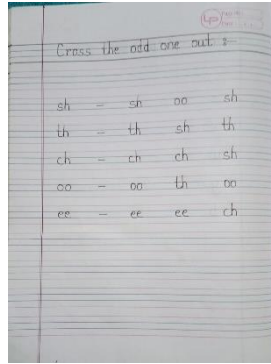 Cross the odd one out :-
sh - sh oo sh
th - th sh th
ch - ch ch sh
oo - oo th oo
ee - ee ee ch